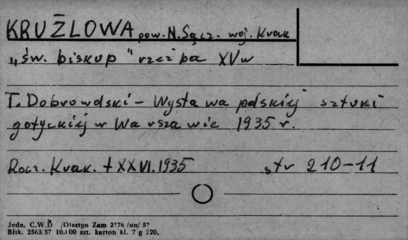 KRUŻLOWA pow. N. Sącz. woj. Krak
„św. biskup" rzeźba XVw
T. Dobrowolski – Wystawa polskiej sztuki
gotyckiej w Warszawie 1935 r.
Rocz. Krak. t XXVI. 1935 str 210–11
Jedn. C.W.D /Olsztyn Zam 2776 /on/ 57
Błsk. 2563/57 10.000 szt. karton kl. 7 g 220.